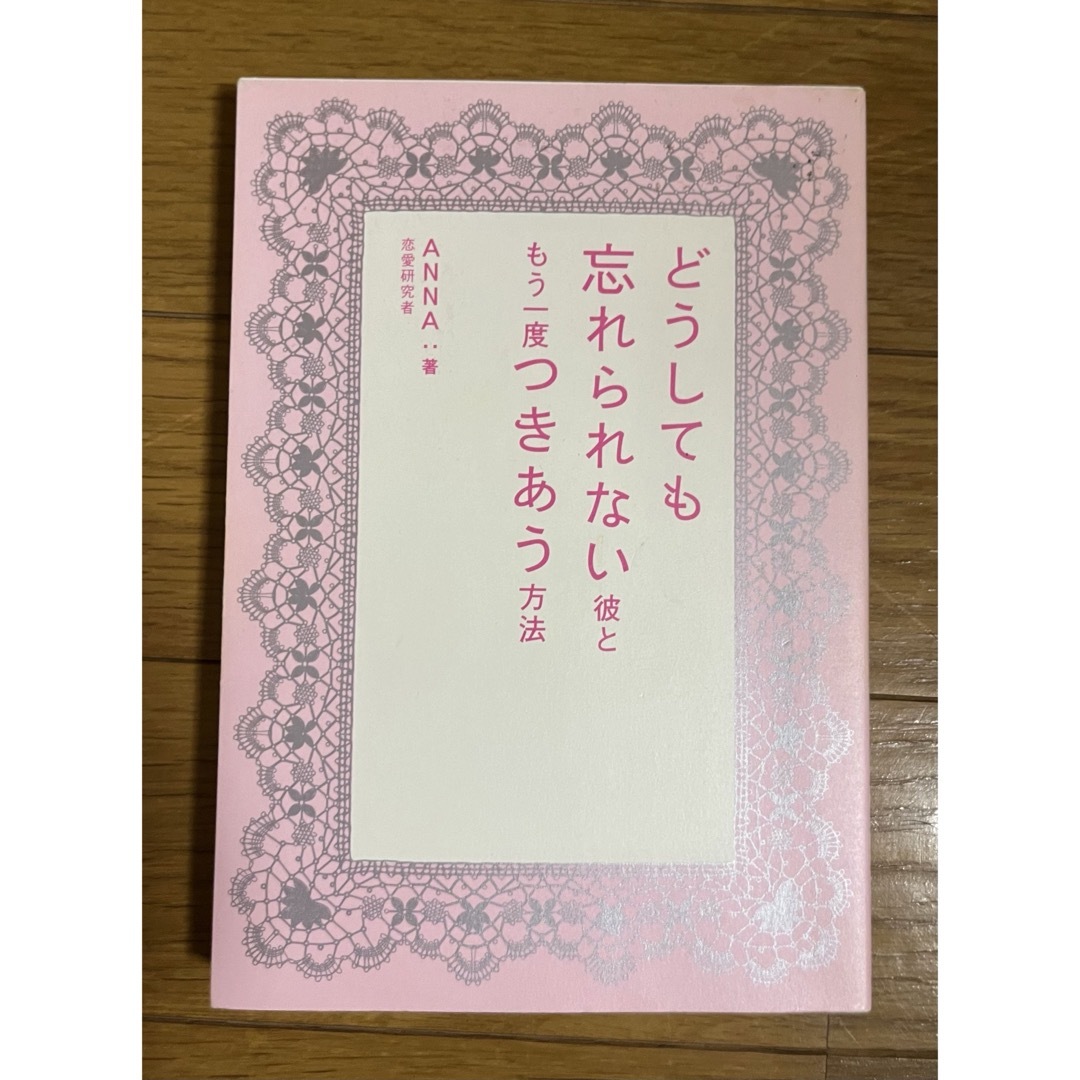 どうしても
忘れられない彼と
もう一度つきあう方法
ANNA：著
恋愛研究者